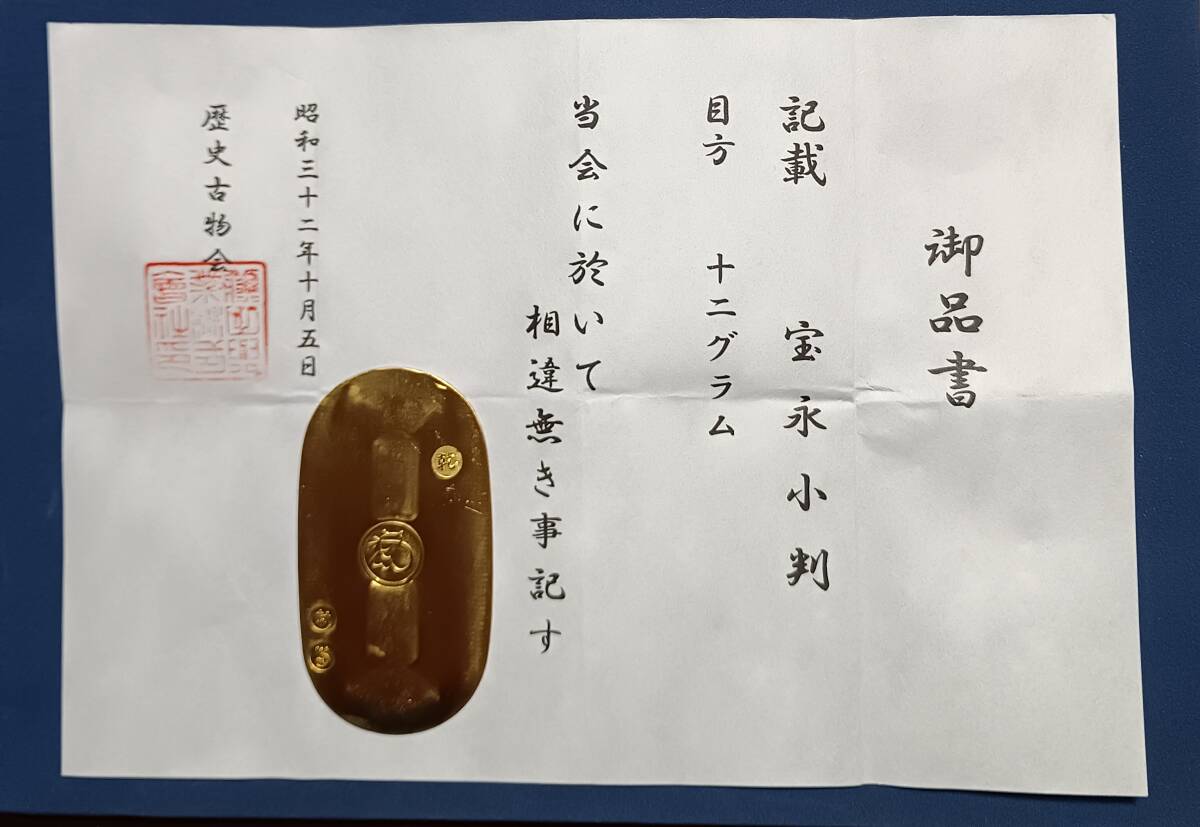 御品書
記載 宝永小判
目方 十二グラム
当会に於いて
相違無き事記す
昭和三十二年十月五日
歴史古物会
乾